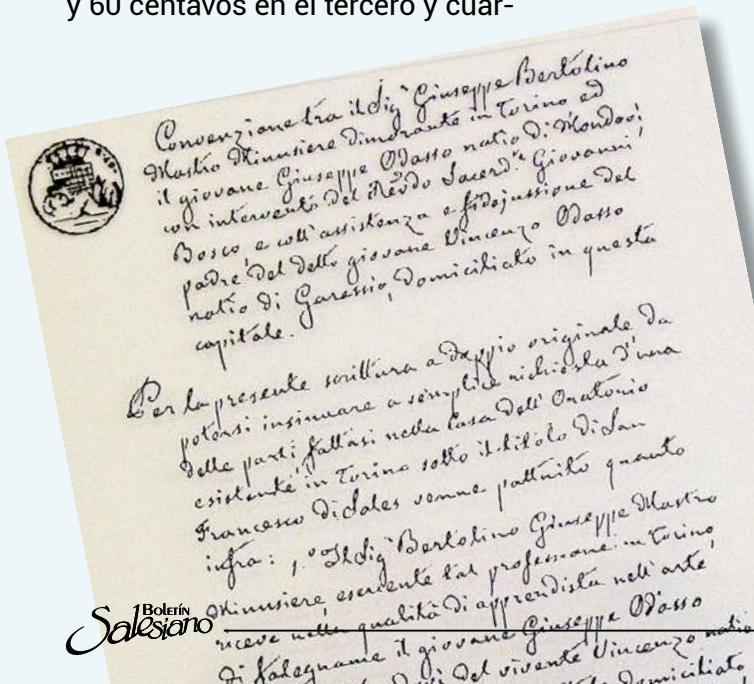 y 60 centavos en el tercero y cuar-
Convenzione tra il Sig.r Giuseppe Bertolino
Mastro Minusiere dimorante in Torino ed
il giovane Giuseppe Odasso natio di Mondovì
con intervento del Revdo Sacerd.te Giovanni
Bosco, e coll'assistenza e fidejussione del
padre del detto giovane Vincenzo Odasso
natio di Garessio, domiciliato in questa
capitale.
Per la presente scrittura a doppio originale da
potersi insinuare a semplice richiesta d'una
delle parti fattasi nella Casa dell'Oratorio
esistente in Torino sotto il titolo di San
Francesco di Sales venne pattuito quanto
infra: 1.o Il Sig.r Bertolino Giuseppe Mastro
Minusiere, esercente tal professione in Torino
riceve nella qualità di apprendista nell'arte
di falegname il giovane Giuseppe Odasso
del vivente Vincenzo natio
domiciliato
Boletín
Salesiano